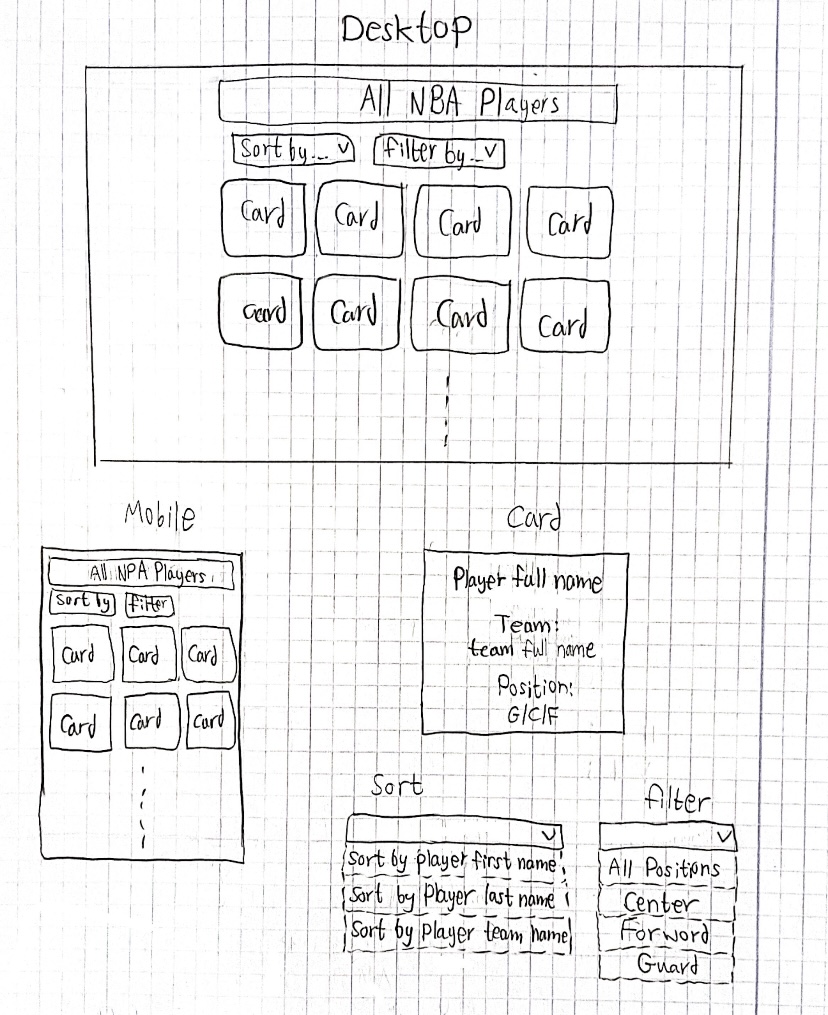 Desktop
All NBA Players
Sort by... v
filter by... v
Card Card Card Card
Card Card Card Card
Mobile
All NPA Players
Sort by filter
Card Card Card
Card Card Card
Card
Player full name
Team:
team full name
Position:
G/C/F
Sort
Sort by player first name
Sort by Player last name
Sort by Player team name
filter
All Positions
Center
Forword
Guard